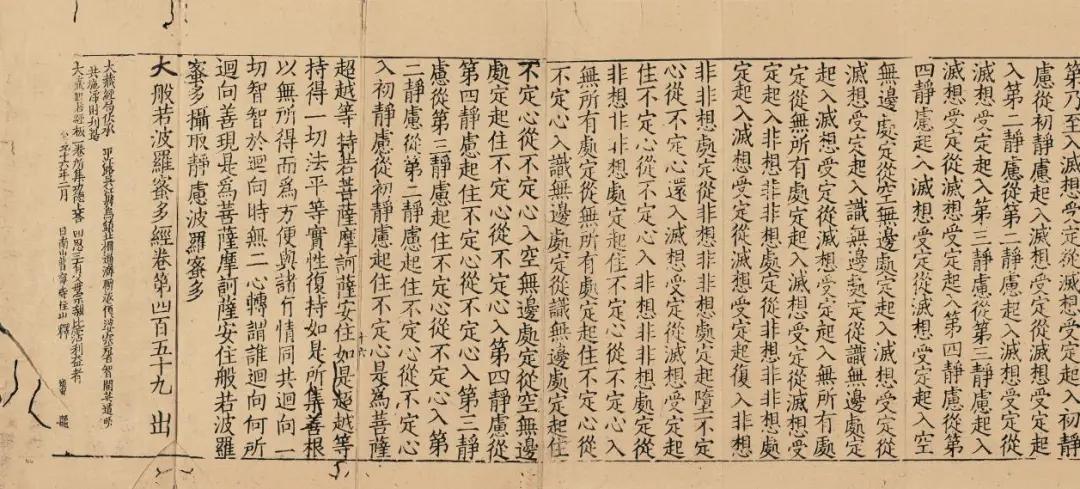 第乃至滅想受定從滅想受定起入初靜
慮從初靜慮起入滅想受定從滅想受定起
入第二靜慮從第二靜慮起入滅想受定從
滅想受定起入第三靜慮從第三靜慮起入
滅想受定從滅想受定起入第四靜慮從第
四靜慮起入滅想受定從滅想受定起入空
無邊處定從空無邊處定起入滅想受定從
滅想受定起入識無邊處定從識無邊處定
起入滅想受定從滅想受定起入無所有處
定從無所有處定起入滅想受定從滅想受
定起入非想非非想處定從非想非非想處
定起入滅想受定從滅想受定起復入非想
非非想處定從非想非非想處定起墮不定
心從不定心還入滅想受定從滅想受定起
住不定心從不定心入非想非非想處定從
非想非非想處定起住不定心從不定心入
無所有處定從無所有處定起住不定心從
不定心入識無邊處定從識無邊處定起住
不定心從不定心入空無邊處定從空無邊
處定起住不定心從不定心入第四靜慮從
第四靜慮起住不定心從不定心入第三靜
慮從第三靜慮起住不定心從不定心入第
二靜慮從第二靜慮起住不定心從不定心
入初靜慮從初靜慮起住不定心是爲菩薩
超越等持若菩薩摩訶薩安住如是超越等
持得一切法平等實性復持如是所集善根
以無所得而爲方便與諸有情同共迴向一
切智智於迴向時無二心轉謂誰迴向何所
迴向善現是爲菩薩摩訶薩安住般若波羅
蜜多攝取靜慮波羅蜜多
大般若波羅蜜多經卷第四百五十九 出
大藏經局伏承
大藏
月 日南山普寧寺住山 釋